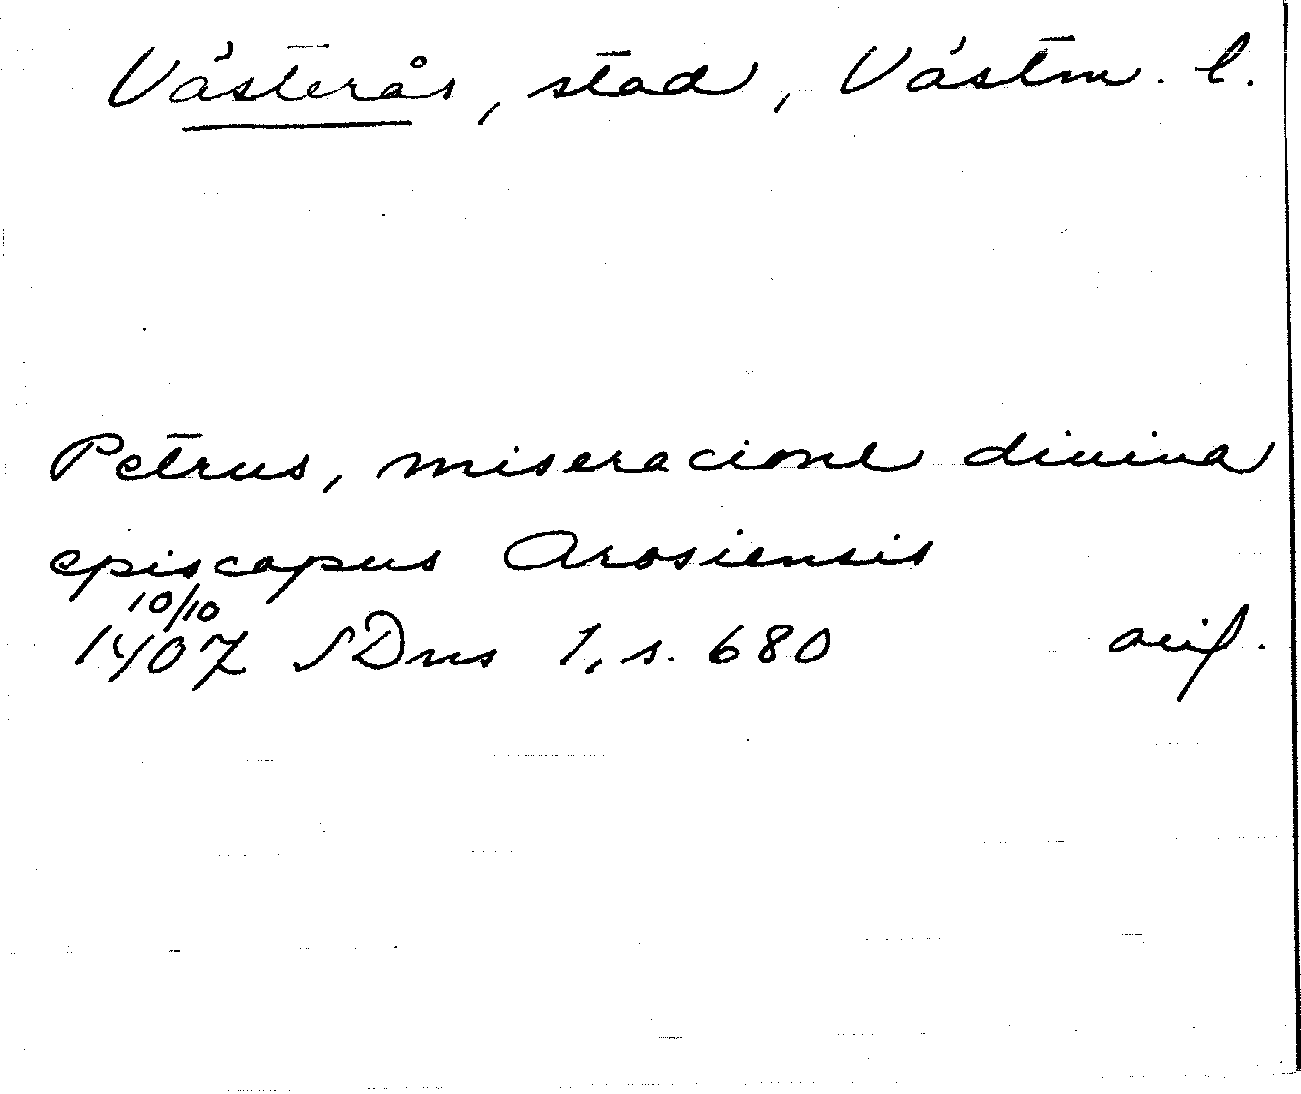 Västerås, stad, Västm. l.
Petrus, miseracione diuina
episcopus Arosiensis
10/10
1407 SDns 1, s. 680 avif.